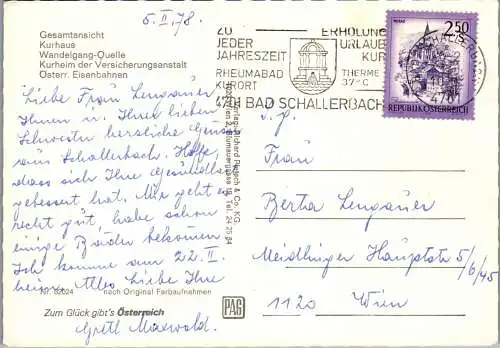 6. II. 78.
Gesamtansicht
Kurhaus
Wandelgang-Quelle
Kurheim der Versicherungsanstalt
Österr. Eisenbahnen
Liebe Frau Lengauer
Ihnen u. Ihrer lieben
Schwester herzliche Grüsse
aus Schallerbach. Hoffe,
dass sich Ihre Gesundheit
gebessert hat. Mir geht es
recht gut, habe schon
einige Bäder bekommen.
Ich komme am 22. II.
heim. Alles Liebe Ihre
Gretl Maxwald.
Nr. 82024 nach Original Farbaufnahmen
Zum Glück gibt's Österreich
PAG
ZU
JEDER
JAHRESZEIT
RHEUMABAD
KURORT
ERHOLUNG
URLAUB
KUR
THERME
37°C
4701 BAD SCHALLERBACH
2.50
REPUBLIK ÖSTERREICH
v. p.
Frau
Berta Lengauer
Meidlinger Hauptstr 5/6/45
1120 Wien